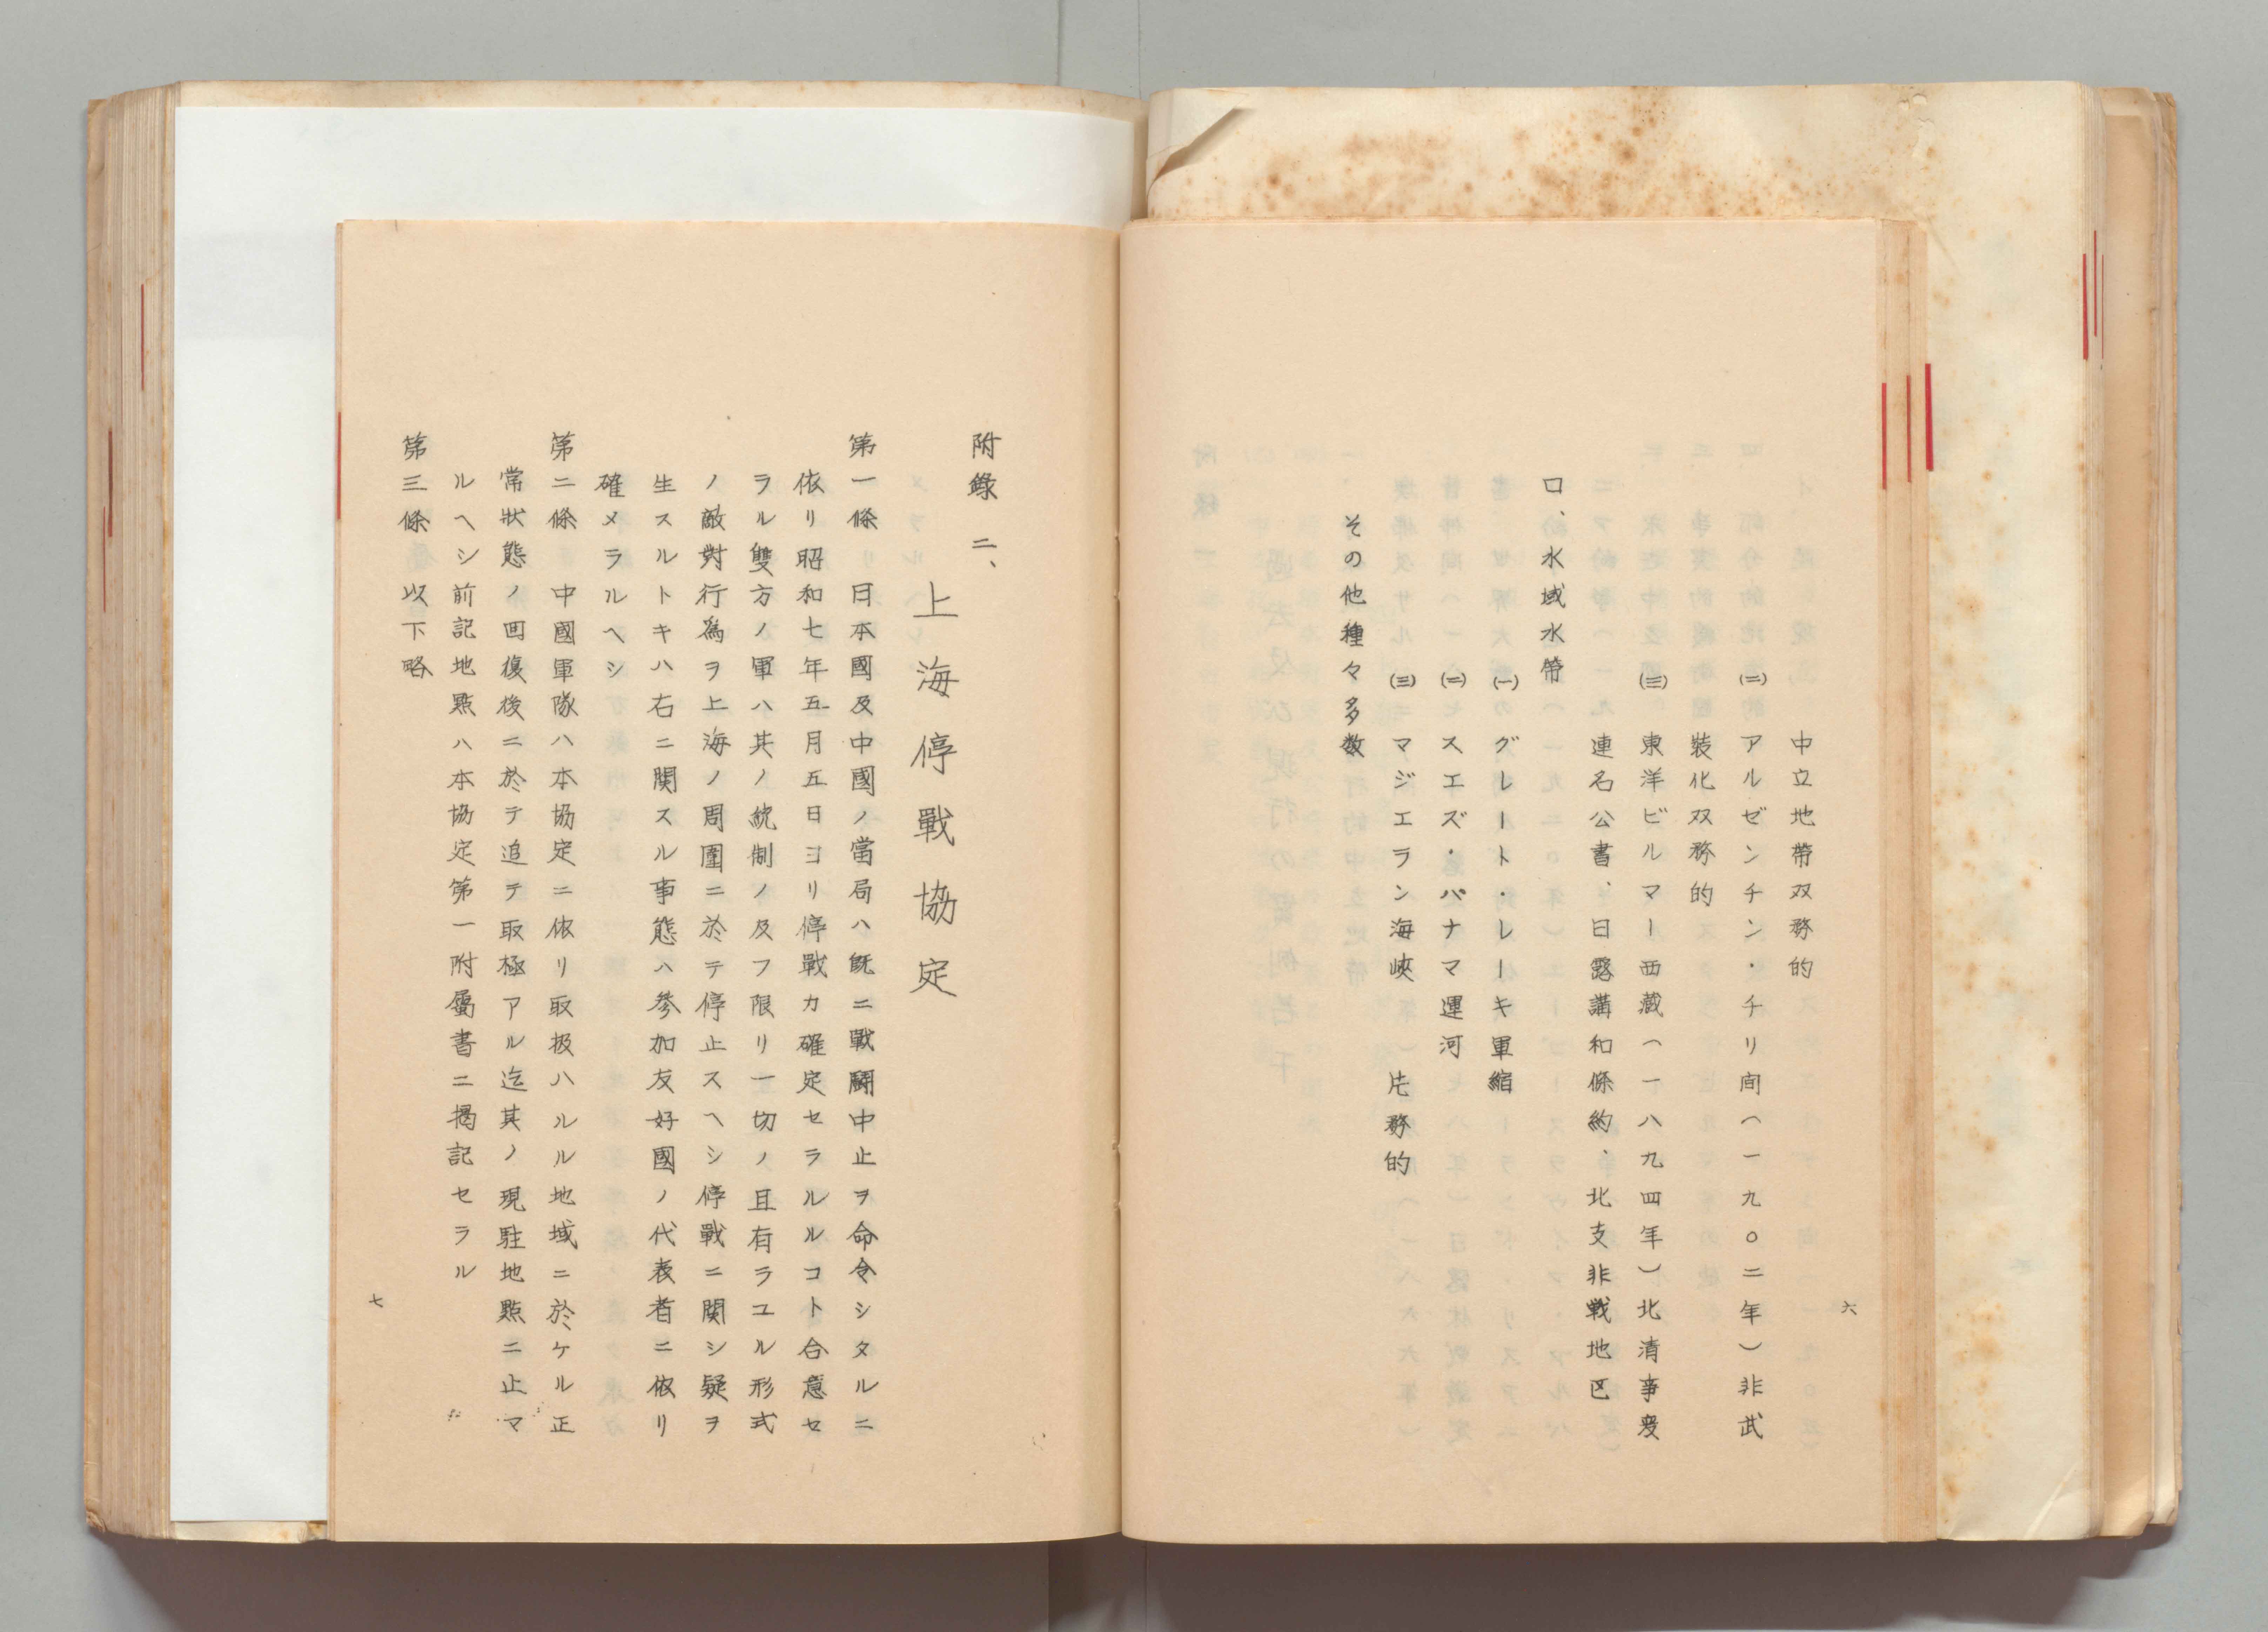 中立地帶双務的
(二) アルゼンチン・チリ间(一九〇二年)非武
裝化双務的
(三) 東洋ビルマー西藏(一八九四年)北清事変
連名公書、日露講和條約、北支非戦地区
口、水域水帶
(一) グレート・レーキ軍縮
(二) スエズ・パナマ運河
(三) マジエラン海峽 片務的
その他種々多数
六
附錄 二、
上海停戰協定
第一條 日本國及中國ノ當局ハ既ニ戰鬪中止ヲ命令シタルニ
依リ昭和七年五月五日ヨリ停戰カ確定セラルルコト合意セ
ラル雙方ノ軍ハ其ノ統制ノ及フ限リ一切ノ且有ラユル形式
ノ敵對行爲ヲ上海ノ周圍ニ於テ停止スヘシ停戰ニ関シ疑ヲ
生スルトキハ右ニ関スル事態ハ参加友好國ノ代表者ニ依リ
確メラルヘシ
第二條 中國軍隊ハ本協定ニ依リ取扱ハルル地域ニ於ケル正
常狀態ノ回復後ニ於テ追テ取極アル迄其ノ現駐地點ニ止マ
ルヘシ前記地點ハ本協定第一附屬書ニ揭記セラル
第三條 以下略
七